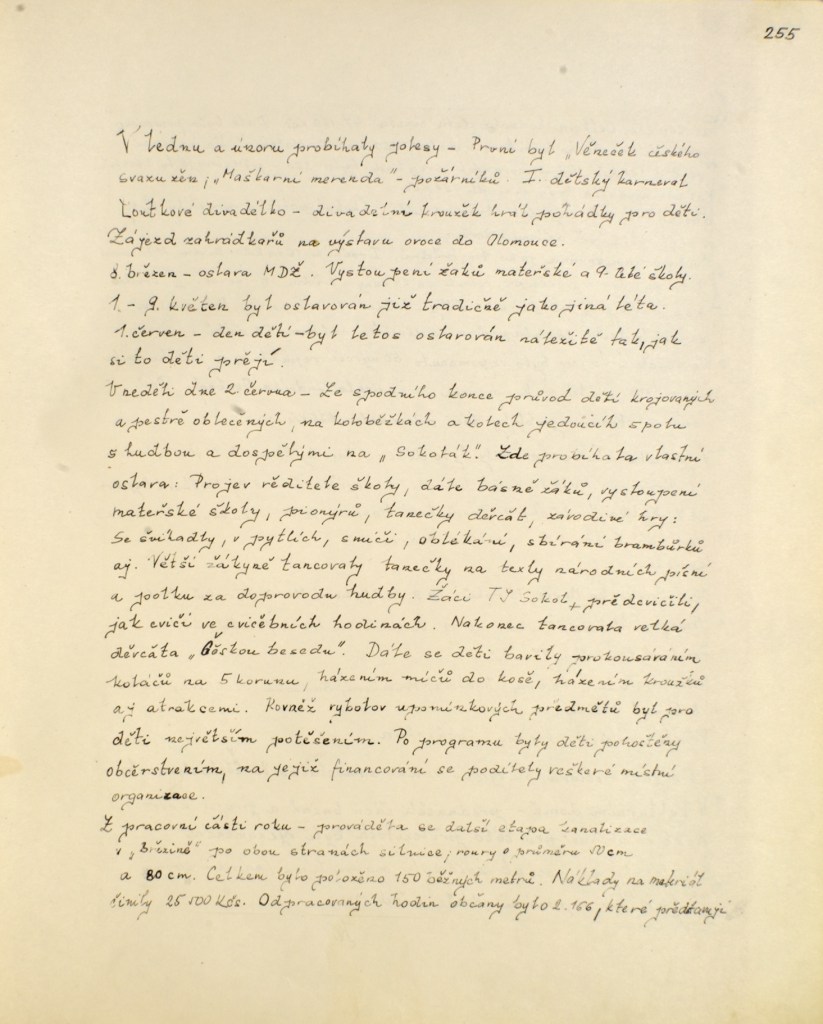 255
V lednu a únoru probíhaly plesy – První byl „Věneček českého
svazu žen, „Maškarní merenda" – požárníků. I. dětský karneval
Loutkové divadélko – divadelní kroužek hrál pohádky pro děti.
Zájezd zahrádkařů na výstavu ovoce do Olomouce.
8. březen – oslava MDŽ. Vystoupení žáků mateřské a 9-leté školy.
1. – 9. květen byl oslavován již tradičně jako jiná léta.
1. červen – den dětí – byl letos oslavován náležitě tak, jak
si to děti přejí.
V neděli dne 2 června – Ze spodního konce průvod dětí krojovaných
a pestře oblečených, na koloběžkách a kolech jedoucích spolu
s hudbou a dospělými na „Sokolák". Zde probíhala vlastní
oslava: Projev ředitele školy, dále básně žáků, vystoupení
mateřské školy, pionýrů, tanečky děvčat, závodivé hry:
Se švihadly, v pytlích, smíčí, oblékání, sbírání brambůrků
aj. Větší žákyně tancovaly tanečky na texty národních písní
a polku za doprovodu hudby. Žáci TJ Sokol, předcvičili,
jak cvičí ve cvičebních hodinách. Nakonec tancovala velká
děvčata „Českou besedu". Dále se děti bavily prokousáváním
koláčů na 5 korunu, házením míčů do koše, házením kroužků
aj atrakcemi. Rovněž rybolov upomínkových předmětů byl pro
děti největším potěšením. Po programu byly děti pohoštěny
občerstvením, na jejíž financování se podílely veškeré místní
organizace.
Z pracovní části roku – prováděla se další etapa kanalizace
v „Březině" po obou stranách silnice; roury o průměru cm
a 80 cm. Celkem bylo položeno 150 běžných metrů. Náklady na materiál
činily 25 000 Kčs. Odpracovaných hodin občany bylo 2.166, které představují